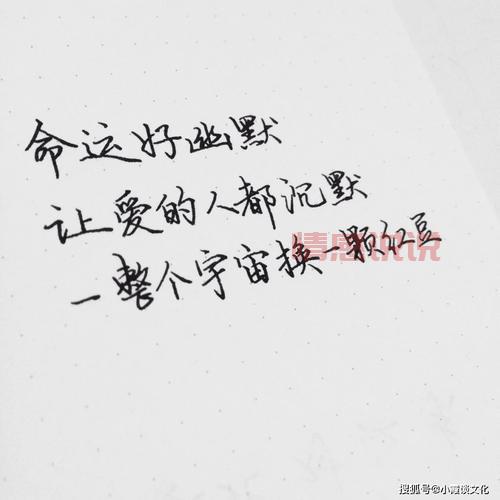 命运好幽默
让爱的人都沉默
一整个宇宙换一颗红豆
情感说说
搜狐号@小霞谈文化